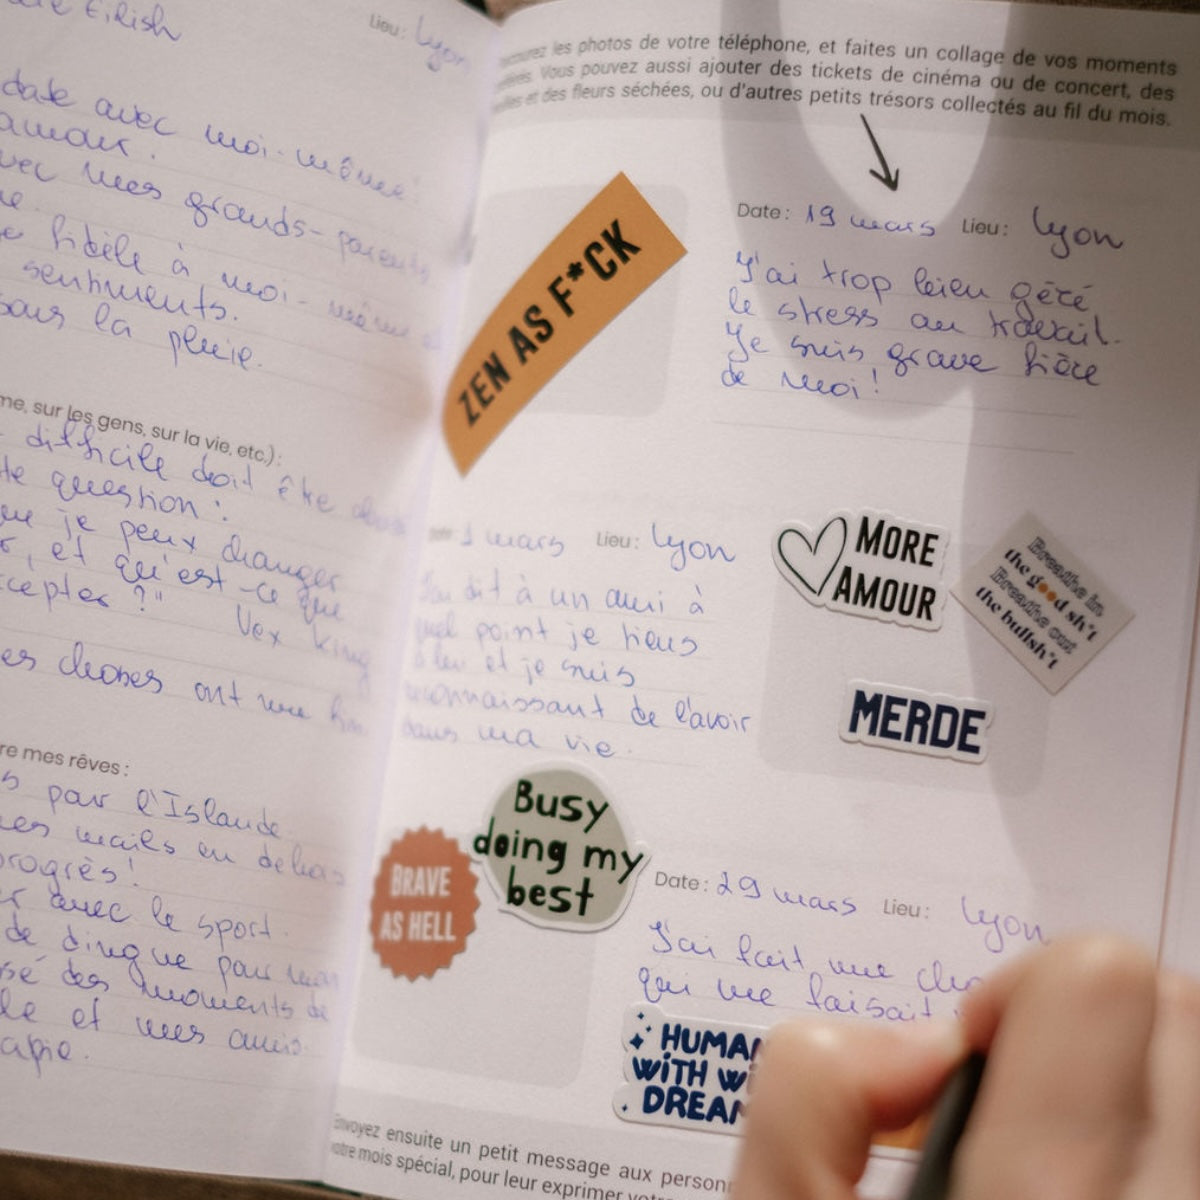 Eilish
Lieu : Lyon
date avec moi-même
amour.
avec mes grands-parents
fidèle à moi-même
sentiments.
sous la pluie.
sur les gens, sur la vie, etc.) :
difficile doit être
question :
je peux changer
et qu'est-ce que
?"
Vex King
choses ont une fin
mes rêves :
par l'Islande
mails en dehors
progrès !
avec le sport.
de dingue pour mon
des moments de
et mes amis.
les photos de votre téléphone, et faites un collage de vos moments
Vous pouvez aussi ajouter des tickets de cinéma ou de concert, des
et des fleurs séchées, ou d'autres petits trésors collectés au fil du mois.
ZEN AS F*CK
Date : 19 mars Lieu : Lyon
J'ai trop bien géré
le stress au travail.
Je suis grave fière
de moi !
mars Lieu : Lyon
J'ai dit à un ami à
quel point je tiens
à lui et je suis
reconnaissant de l'avoir
dans ma vie.
MORE
AMOUR
Breathe in
the good sh*t
Breathe out
the bullsh*t
MERDE
BUSY
doing my
best
BRAVE
AS HELL
Date : 29 mars Lieu : Lyon
J'ai fait une
qui me faisait
HUMAN
WiTH
DREAM
Envoyez ensuite un petit message aux
votre mois spécial, pour leur exprimer